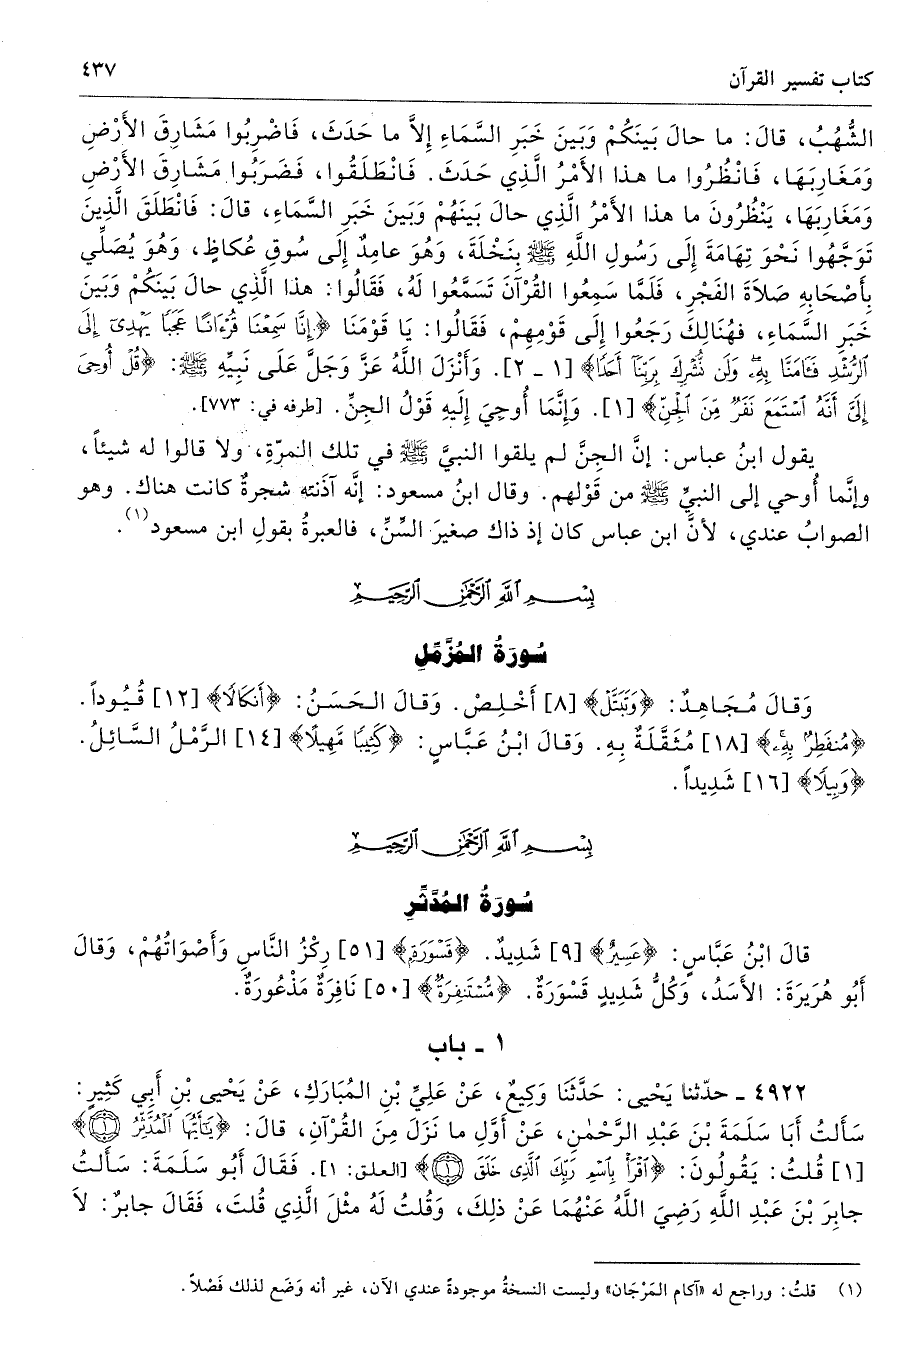 كتاب تفسير القرآن
٤٣٧
الشُّهُبُ، قالَ: ما حالَ بَينَكُمْ وَبَينَ خَبَرِ السَّمَاءِ إِلاَّ ما حَدَثَ، فَاضْرِبُوا مَشَارِقَ الأَرْضِ
وَمَغَارِبَهَا، فَانْظُرُوا ما هذا الأَمْرُ الَّذِي حَدَثَ. فَانْطَلَقُوا، فَضَرَبُوا مَشَارِقَ الأَرْضِ
وَمَغَارِبَهَا، يَنْظُرُونَ ما هذا الأَمْرُ الَّذِي حالَ بَينَهُمْ وَبَينَ خَبَرِ السَّمَاءِ، قالَ: فَانْطَلَقَ الَّذِينَ
تَوَجَّهُوا نَحْوَ تِهَامَةَ إِلَى رَسُولِ اللَّهِ ﷺ بِنَخْلَةَ، وَهُوَ عامِدٌ إِلَى سُوقِ عُكاظٍ، وَهُوَ يُصَلِّي
بِأَصْحَابِهِ صَلاَةَ الفَجْرِ، فَلَمَّا سَمِعُوا القُرْآنَ تَسَمَّعُوا لَهُ، فَقَالُوا: هذا الَّذِي حالَ بَينَكُمْ وَبَينَ
خَبَرِ السَّمَاءِ، فَهُنَالِكَ رَجَعُوا إِلَى قَوْمِهِمْ، فَقَالُوا: يَا قَوْمَنَا ﴿إِنَّا سَمِعْنَا قُرْءَانًا عَجَبًا يَهْدِىٓ إِلَى
ٱلرُّشْدِ فَـَٔامَنَّا بِهِۦۖ وَلَن نُّشْرِكَ بِرَبِّنَآ أَحَدًا﴾ [١ - ٢]. وَأَنْزَلَ اللَّهُ عَزَّ وَجَلَّ عَلَى نَبِيِّهِ ﷺ: ﴿قُلْ أُوحِىَ
إِلَىَّ أَنَّهُ ٱسْتَمَعَ نَفَرٌ مِّنَ ٱلْجِنِّ﴾ [١]. وَإِنَّما أُوحِيَ إِلَيهِ قَوْلُ الجِنِّ. [طرفه في: ٧٧٣].
يقول ابنُ عباس: إنَّ الجِنَّ لم يلقوا النبيَّ ﷺ في تلك المرّةِ، ولا قالوا له شيئاً،
وإنَّما أُوحي إلى النبيِّ ﷺ من قَوْلهم. وقال ابنُ مسعود: إنَّه آذَنَتْه شجرةٌ كانت هناك. وهو
الصوابُ عندي، لأنَّ ابن عباس كان إذ ذاك صغيرَ السِّنِّ، فالعبرةُ بقولِ ابن مسعود(١).
بِسْمِ ٱللَّهِ ٱلرَّحْمَٰنِ ٱلرَّحِيمِ
سُورَةُ المُزَّمِّلِ
وَقالَ مُجَاهِدٌ: ﴿وَتَبَتَّلْ﴾ [٨] أَخْلِصْ. وَقالَ الحَسَنُ: ﴿أَنكَالًا﴾ [١٢] قُيُوداً.
﴿مُنفَطِرٌ بِهِۦ﴾ [١٨] مُثَقَّلَةٌ بِهِ. وَقالَ ابْنُ عَبَّاسٍ: ﴿كَثِيبًا مَّهِيلًا﴾ [١٤] الرَّمْلُ السَّائِلُ.
﴿وَبِيلًا﴾ [١٦] شَدِيداً.
بِسْمِ ٱللَّهِ ٱلرَّحْمَٰنِ ٱلرَّحِيمِ
سُورَةُ المُدَّثِّرِ
قالَ ابْنُ عَبَّاسٍ: ﴿عَسِيرٌ﴾ [٩] شَدِيدٌ. ﴿قَسْوَرَةٍ﴾ [٥١] رِكْزُ النَّاسِ وَأَصْوَاتُهُمْ، وَقالَ
أَبُو هُرَيرَةَ: الأَسَدُ، وَكُلُّ شَدِيدٍ قَسْوَرَةٌ. ﴿مُّسْتَنفِرَةٌ﴾ [٥٠] نَافِرَةٌ مَذْعُورَةٌ.
١ - باب
٤٩٢٢ - حدّثنا يَحْيى: حَدَّثَنَا وَكِيعٌ، عَنْ عَلِيِّ بْنِ المُبَارَكِ، عَنْ يَحْيى بْنِ أَبِي كَثِيرٍ:
سَأَلتُ أَبَا سَلَمَةَ بْنَ عَبْدِ الرَّحْمٰنِ، عَنْ أَوَّلِ ما نَزَلَ مِنَ القُرْآنِ، قالَ: ﴿يَٰٓأَيُّهَا ٱلْمُدَّثِّرُ ۝١﴾
[١] قُلتُ: يَقُولُونَ: ﴿ٱقْرَأْ بِٱسْمِ رَبِّكَ ٱلَّذِى خَلَقَ ۝١﴾ [العلق: ١]. فَقَالَ أَبُو سَلَمَةَ: سَأَلتُ
جابِرَ بْنَ عَبْدِ اللَّهِ رَضِيَ اللَّهُ عَنْهُمَا عَنْ ذلِكَ، وَقُلتُ لَهُ مِثْلَ الَّذِي قُلتَ، فَقَالَ جابِرٌ: لاَ
(١) قلتُ: وراجع له «آكام المَرْجَان» وليست النسخةُ موجودةً عندي الآن، غير أنه وَضَع لذلك فَصْلاً.